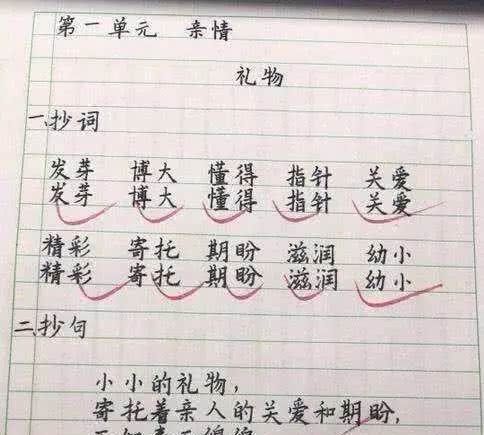 第一单元 亲情
礼物
一、抄词
发芽 博大 懂得 指针 关爱
发芽 博大 懂得 指针 关爱
精彩 寄托 期盼 滋润 幼小
精彩 寄托 期盼 滋润 幼小
二、抄句
小小的礼物，
寄托着亲人的关爱和期盼，